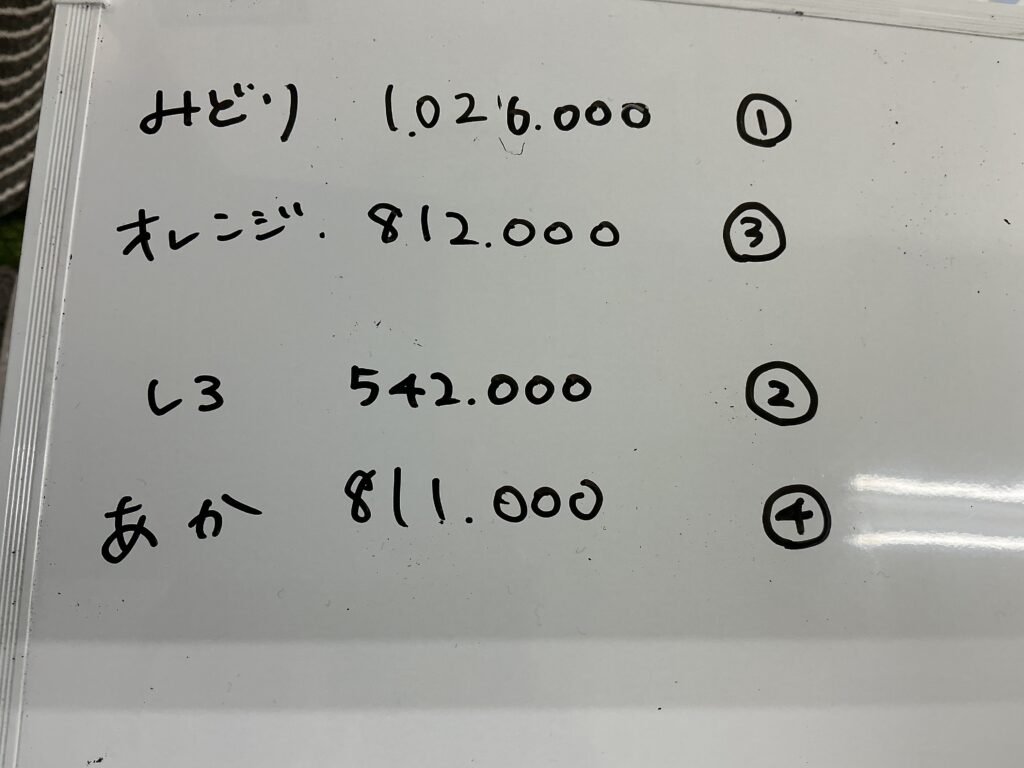 みどり 1.026.000 ①
オレンジ. 812.000 ③
しろ 542.000 ②
あか 811.000 ④